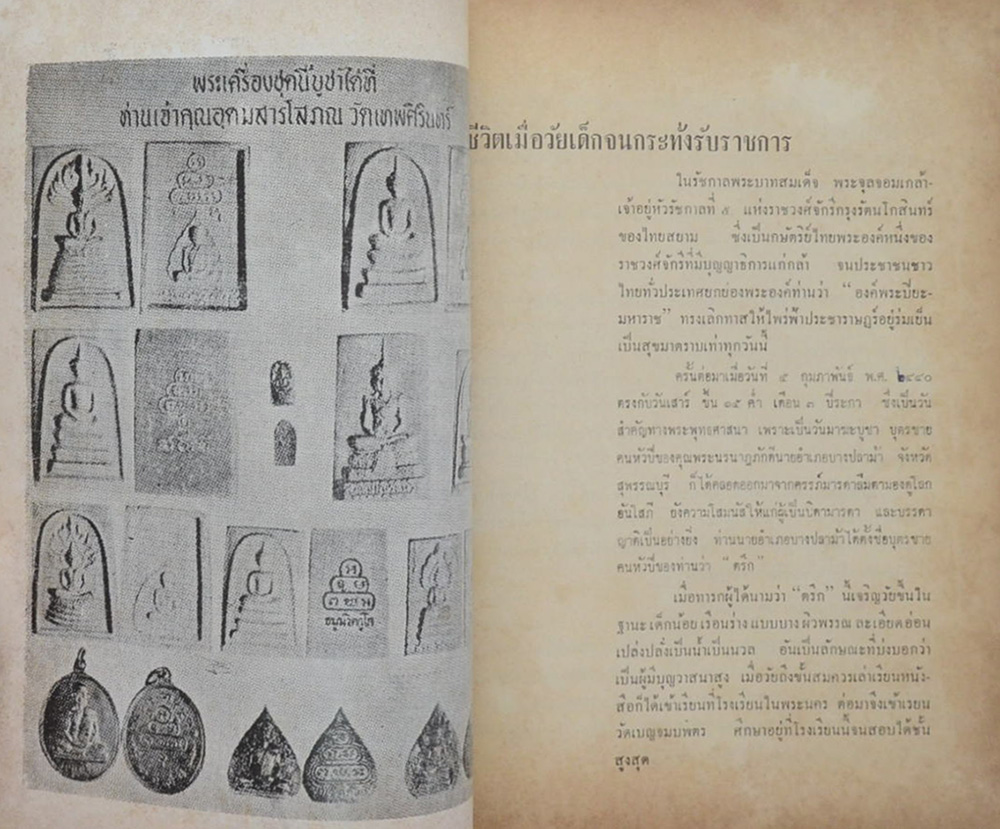 พระเครื่องชุดนี้บูชาได้ที่
ท่านเจ้าคุณอุดมสารโสภณ วัดเทพศิรินทร์
ธมฺมวิตกฺโก
ชีวิตเมื่อวัยเด็กจนกระทั่งรับราชการ
ในรัชกาลพระบาทสมเด็จ พระจุลจอมเกล้า-
เจ้าอยู่หัวรัชกาลที่ ๕ แห่งราชวงศ์จักรีกรุงรัตนโกสินทร์
ของไทยสยาม ซึ่งเป็นกษัตริย์ไทยพระองค์หนึ่งของ
ราชวงศ์จักรีที่มีบุญญาธิการแก่กล้า จนประชาชนชาว
ไทยทั่วประเทศยกย่องพระองค์ท่านว่า “องค์พระปิยะ-
มหาราช” ทรงเลิกทาสให้ไพร่ฟ้าประชาราษฎร์อยู่ร่มเย็น
เป็นสุขมาตราบเท่าทุกวันนี้
ครั้นต่อมาเมื่อวันที่ ๕ กุมภาพันธ์ พ.ศ. ๒๔๔๐
ตรงกับวันเสาร์ ขึ้น ๑๕ ค่ำ เดือน ๓ ปีระกา ซึ่งเป็นวัน
สำคัญทางพระพุทธศาสนา เพราะเป็นวันมาฆะบูชา บุตรชาย
คนหัวปีของคุณพระนรนาฏภักดีนายอำเภอบางปลาม้า จังหวัด
สุพรรณบุรี ก็ได้คลอดออกมาจากครรภ์มารดาลืมตามองดูโลก
อันโสภี ยังความโสมนัสให้แก่ผู้เป็นบิดามารดา และบรรดา
ญาติเป็นอย่างยิ่ง ท่านนายอำเภอบางปลาม้าได้ตั้งชื่อบุตรชาย
คนหัวปีของท่านว่า “ตรึก”
เมื่อทารกผู้ได้นามว่า “ตรึก” นี้เจริญวัยขึ้นใน
ฐานะเด็กน้อย เรือนร่างแบบบาง ผิวพรรณ ละเอียดอ่อน
เปล่งปลั่งเป็นน้ำเป็นนวล อันเป็นลักษณะที่บ่งบอกว่า
เป็นผู้มีบุญวาสนาสูง เมื่อวัยถึงขั้นสมควรเล่าเรียนหนัง-
สือก็ได้เข้าเรียนที่โรงเรียนในพระนคร ต่อมาจึงเข้าเรียน
วัดเบญจมบพิตร ศึกษาอยู่ที่โรงเรียนนี้จนสอบได้ชั้น
สูงสุด